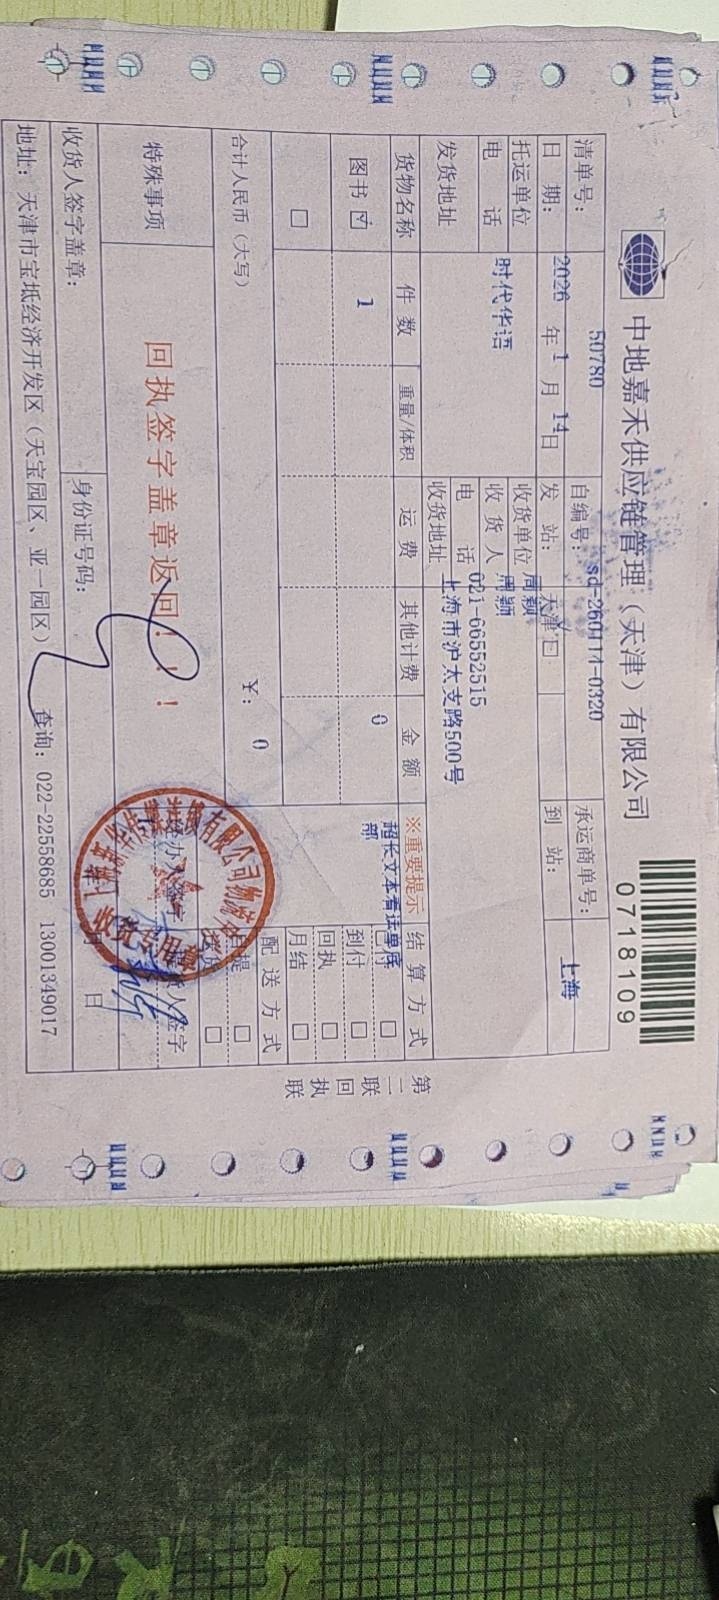 中地嘉禾供应链管理（天津）有限公司
0718109
清单号： 50780 自编号： sd-260114-0320 承运商单号：
日 期： 2026 年 1 月 14 日 发 站： 天津 到 站： 上海
托运单位 时代华语 收货单位 周颖
收 货 人 周颖
电 话 电 话 021-66552515
发货地址 收货地址 上海市沪太支路500号
货物名称 件 数 重量/体积 运 费 其他计费 金 额 ※重要提示 结 算 方 式
图书 ☑ 1 0 超长文本看该单底部
□
已付 □
到付 □
回执 □
月结 □
合计人民币（大写） ￥： 0 配 送 方 式
自提 □
送货 □
特殊事项 回执签字盖章返回！！！
经办人签字
收货专用章
收货人签字盖章： 身份证号码： 年 月 日
地址：天津市宝坻经济开发区（天宝园区、亚一园区） 查询：022-22558685 13001349017
第二联 回执联